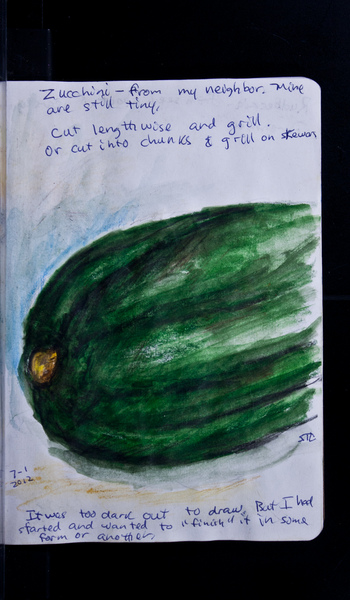 Zucchini - from my neighbor. Mine
are still tiny.
Cut lengthwise and grill.
Or cut into chunks & grill on skewers
STC
7-1
2012
It was too dark out to draw. But I had
started and wanted to "finish" it in some
form or another.